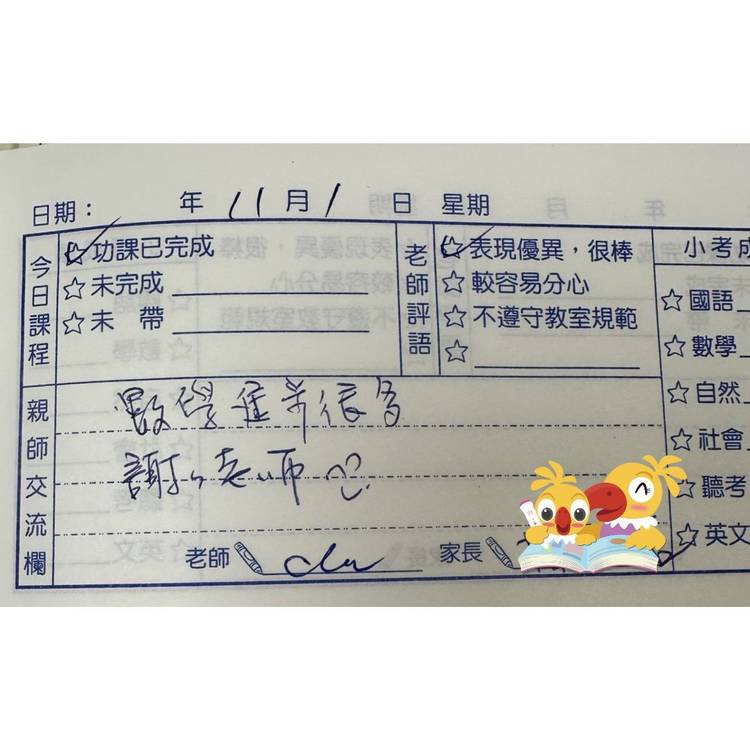 日期： 年 11 月 1 日 星期
今日課程
功課已完成
未完成
未 帶
老師評語
表現優異，很棒
較容易分心
不遵守教室規範
小考成
國語
數學
自然
社會
聽考
英文
親師交流欄
數學進步很多
謝謝老師
老師
家長